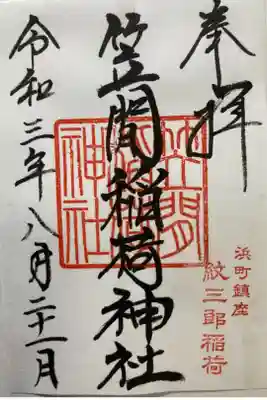 奉拝
浜町鎮座
紋三郎稲荷
笠間稲荷神社
笠間稲荷神社
令和三年八月二十一日